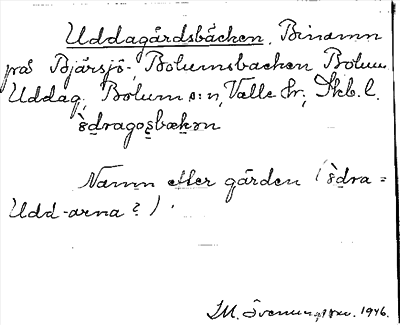 Uddagårdsbäcken. Binamn
på Bjärsjö-, Bolumsbacken Bolum
Uddag, Bolum s:n, Valle hr, Skb. l.
Namn efter gården (
Udd-arna?).
1946.